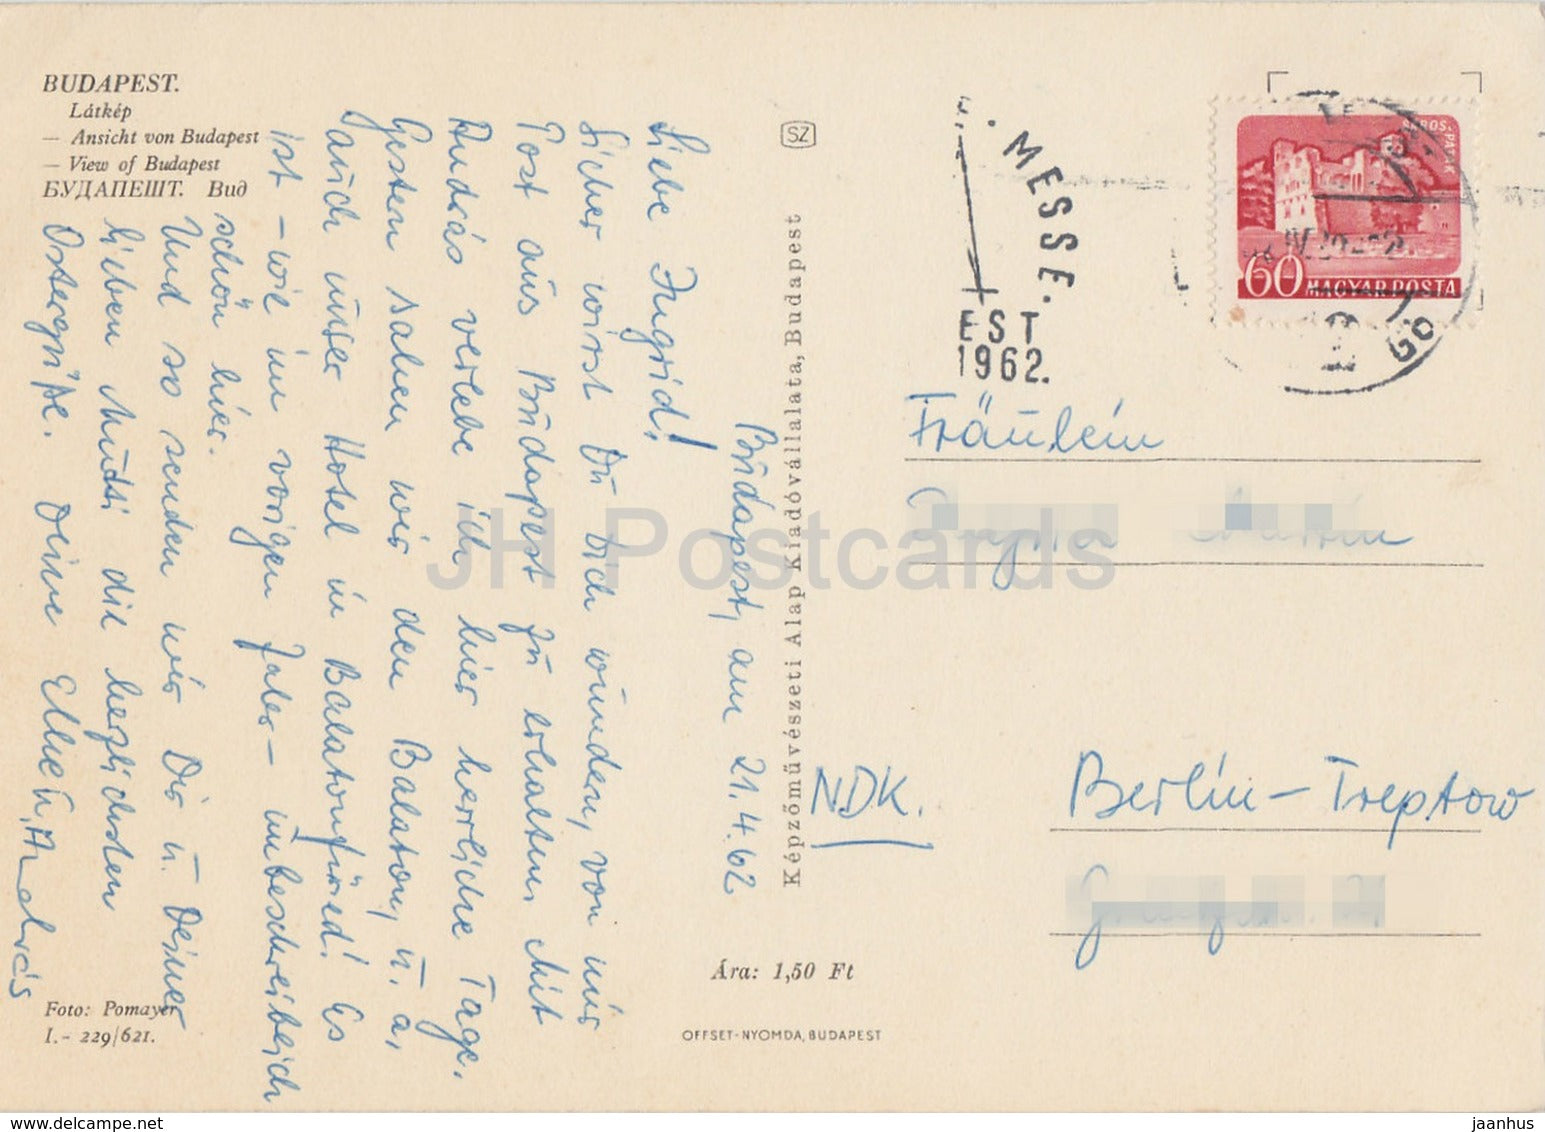 BUDAPEST.
Látkép
— Ansicht von Budapest
— View of Budapest
БУДАПЕШТ. Вид
Budapest, am 21.4.62
Liebe Ingrid!
Sicher wirst Du Dich wundern, von mir
Post aus Budapest zu erhalten. Mit
András verlebe ich hier herrliche Tage.
Gestern sahen wir den Balaton, u. a,
auch unser Hotel in Balatonfüred! Es
ist – wie im vorigen Jahr – unbeschreiblich
schön hier.
Und so senden wir Dir u. Deiner
lieben Mutti die herzlichsten
Ostergrüße. Deine Ellie u. András
Foto: Pomayer
I.- 229/621.
SZ
Képzőművészeti Alap Kiadóvállalata, Budapest
Ára: 1,50 Ft
OFFSET-NYOMDA, BUDAPEST
. MESSE.
EST
1962.
60 MAGYAR POSTA
Fräulein
NDK.
Berlin – Treptow
JH Postcards
jaanhus ww.delcampe.net